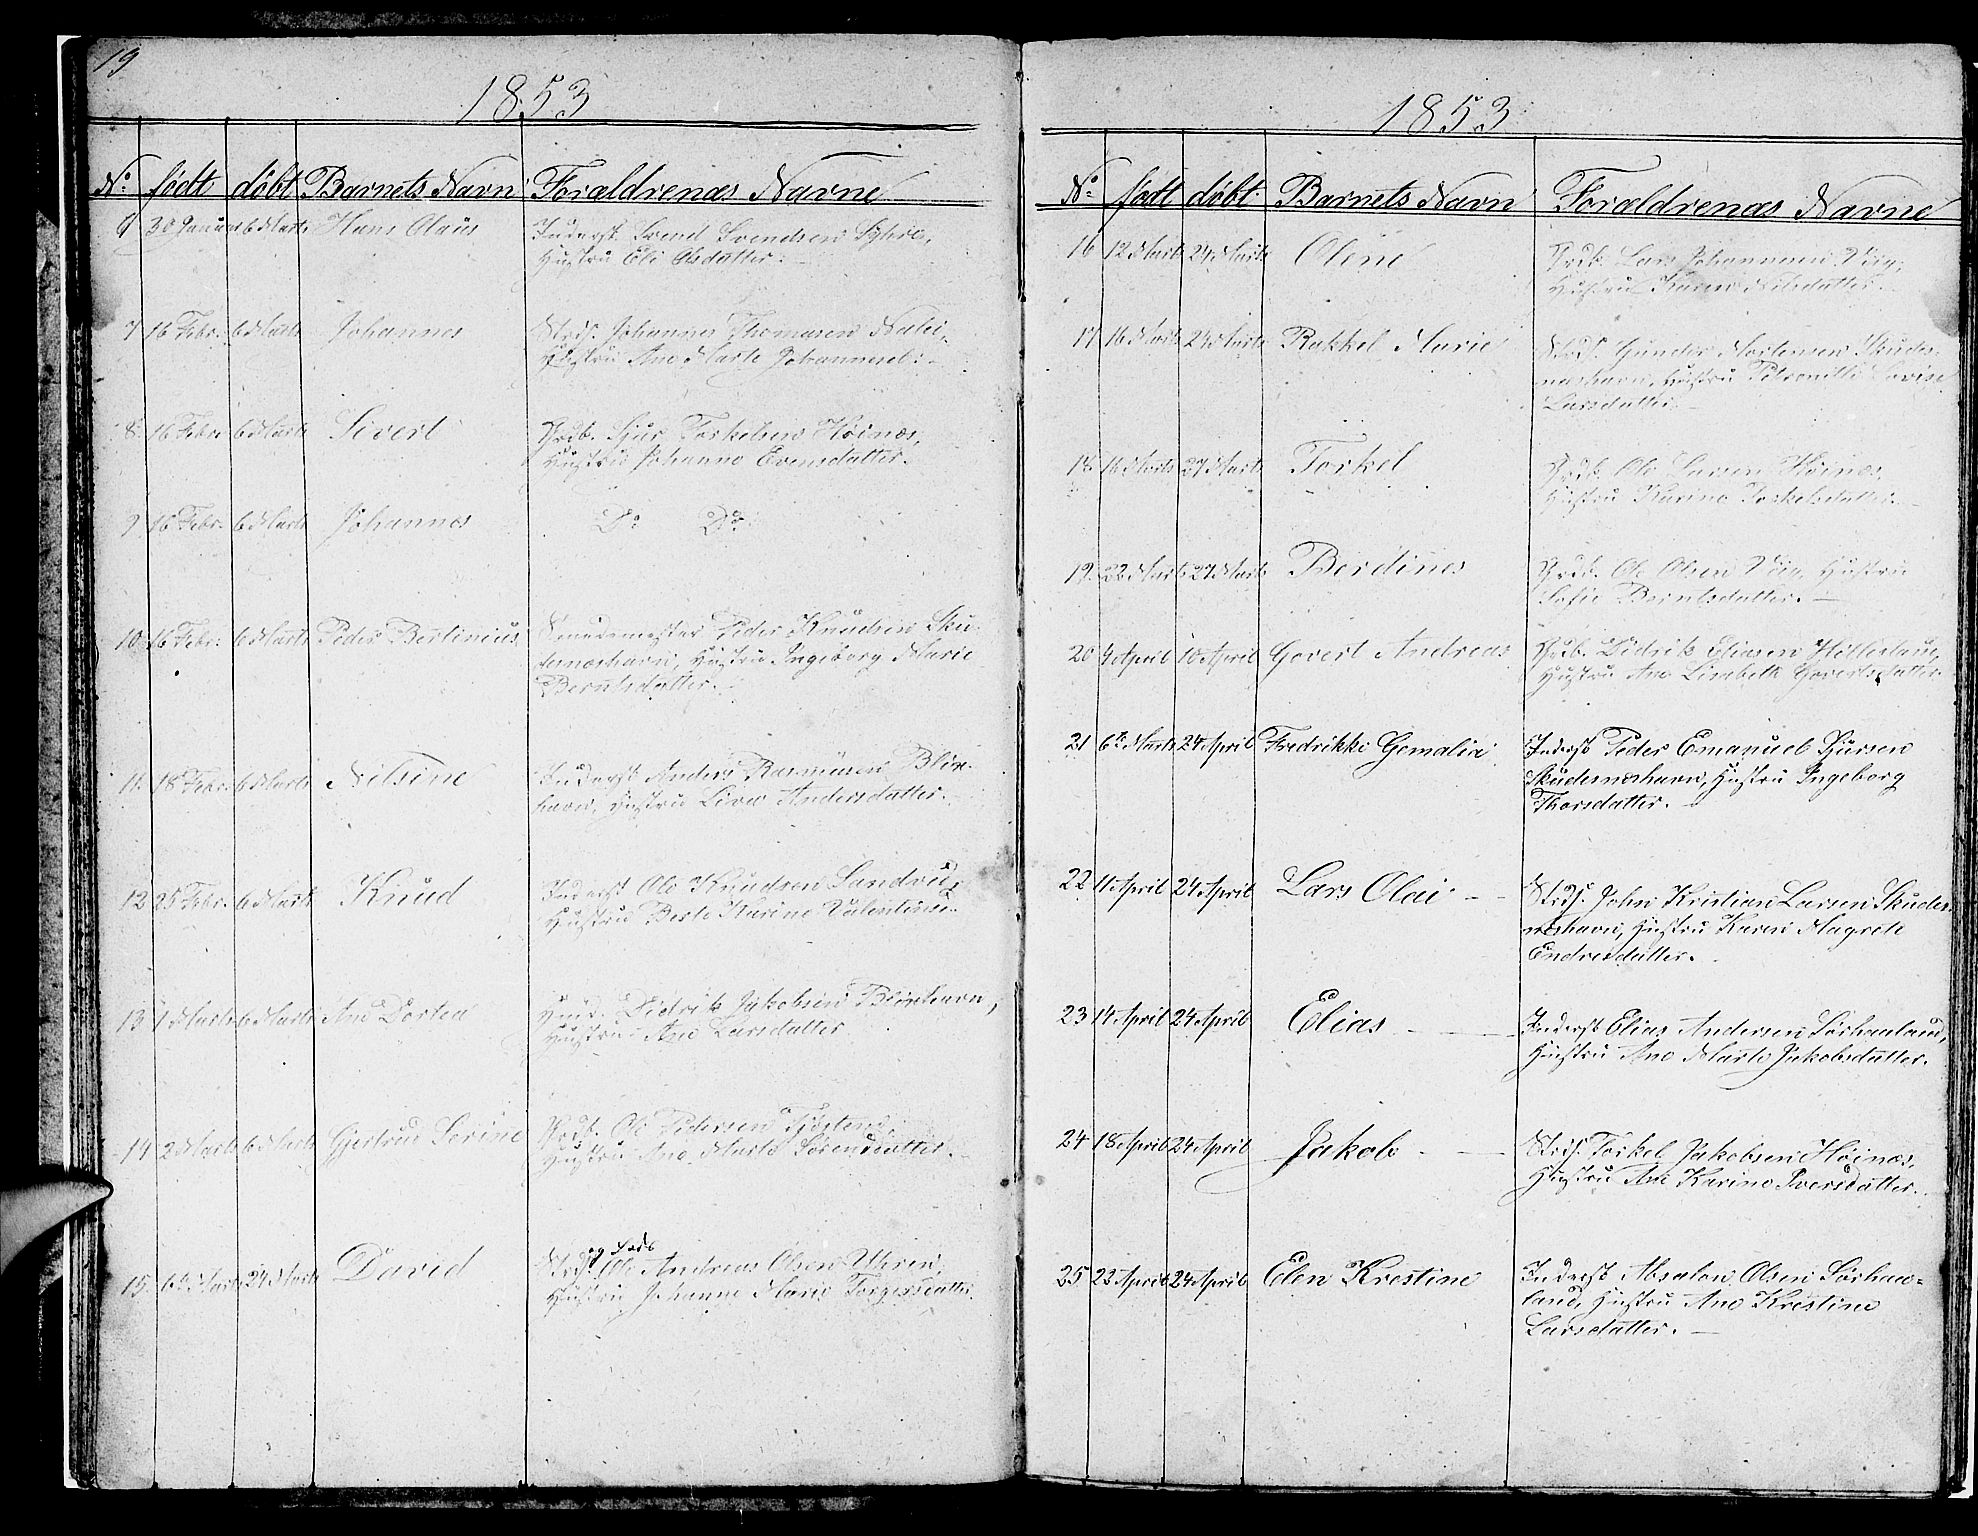 19
1853
No. født døbt Barnets Navn Forældrenes Navne
6 30 Januar 6 Marts Hans Olaus Inderst Svend Svendsen Syhre,
Hustru Eli Olsdatter.
7 16 Febr. 6 Marts Johannes Strds. Johannes Thomasen
Hustru Ane Marte Johannesd:
8. 16 Febr. 6 Marts Sivert Grdb. Sjur Torkelsen Høinæs,
Hustru Johanne Evensdatter.
9 16 Febr. 6 Marts Johannes Do Do
10 16 Febr. 6 Marts Peder Bertinius Peder Knudsen Sku-
desneshavn, Hustru Ingeborg Marie
Berntsdatter.
11. 18 Febr. 6 Marts Nilsine Inderst Anders Rasmusen
havn, Hustru Liva Andersdatter.
12 25 Febr. 6 Marts Knud Inderst Ole Knudsen Sandvig,
Hustru Karine
13 1 Marts 6 Marts Ane Dortea Didrik Jakobsen
Hustru Ane Larsdatter
14 2 Marts 6 Marts Gjertrud Serine Grdb. Ole Pedersen
Hustru Ane Marte Sørensdatter.
15. 6te Marts 24 Marts David Strds. og Fadb Ole Andreas Olsen
Hustru Johanne Marie Torgersdatter.
1853
No. født døbt. Barnets Navn Forældrenes Navne
16 12 Marts 24 Marts Olene Grdb. Lars Johannesen
Hustru Karen Nilsdatter.
17 16 Marts 24 Marts Rakkel Marie Strds. Gunder Mortensen Skudes-
neshavn, Hustru Petronille Lovise
Larsdatter.
18. 16 Marts 27 Marts Torkel Grdb. Ole Larsen Høinæs,
Hustru Karine Torkelsdatter.
19. 22 Marts 27 Marts Berdines Grdb. Ole Olsen Hustru
Sofie Berntsdatter.
20 4 April 10 April Govert Andreas Grdb. Didrik Eliasen
Hustru Ane Lisbeth Govertsdatter.
21 6te Marts 24 April Fredrikke Gemalia Inderst Peder Emanuel
Skudesneshavn, Hustru Ingeborg
Thorsdatter.
22 11 April 24 April Lars Olai Strds. John Kristian Larsen Skudes-
neshavn, Hustru Karen Magrete
Endresdatter.
23 14 April 24 April Elias Inderst Elias Andersen Sørhauland,
Hustru Ane Marte Jakobsdatter.
24 18 April 24 April Jakob Strds. Torkel Jakobsen Høinæs,
Hustru Ane Karine Iversdatter.
25 23 April 24 April Elen Krestine Inderst Absalon Olsen Sørhau-
land, Hustru Ane Krestine
Larsdatter.